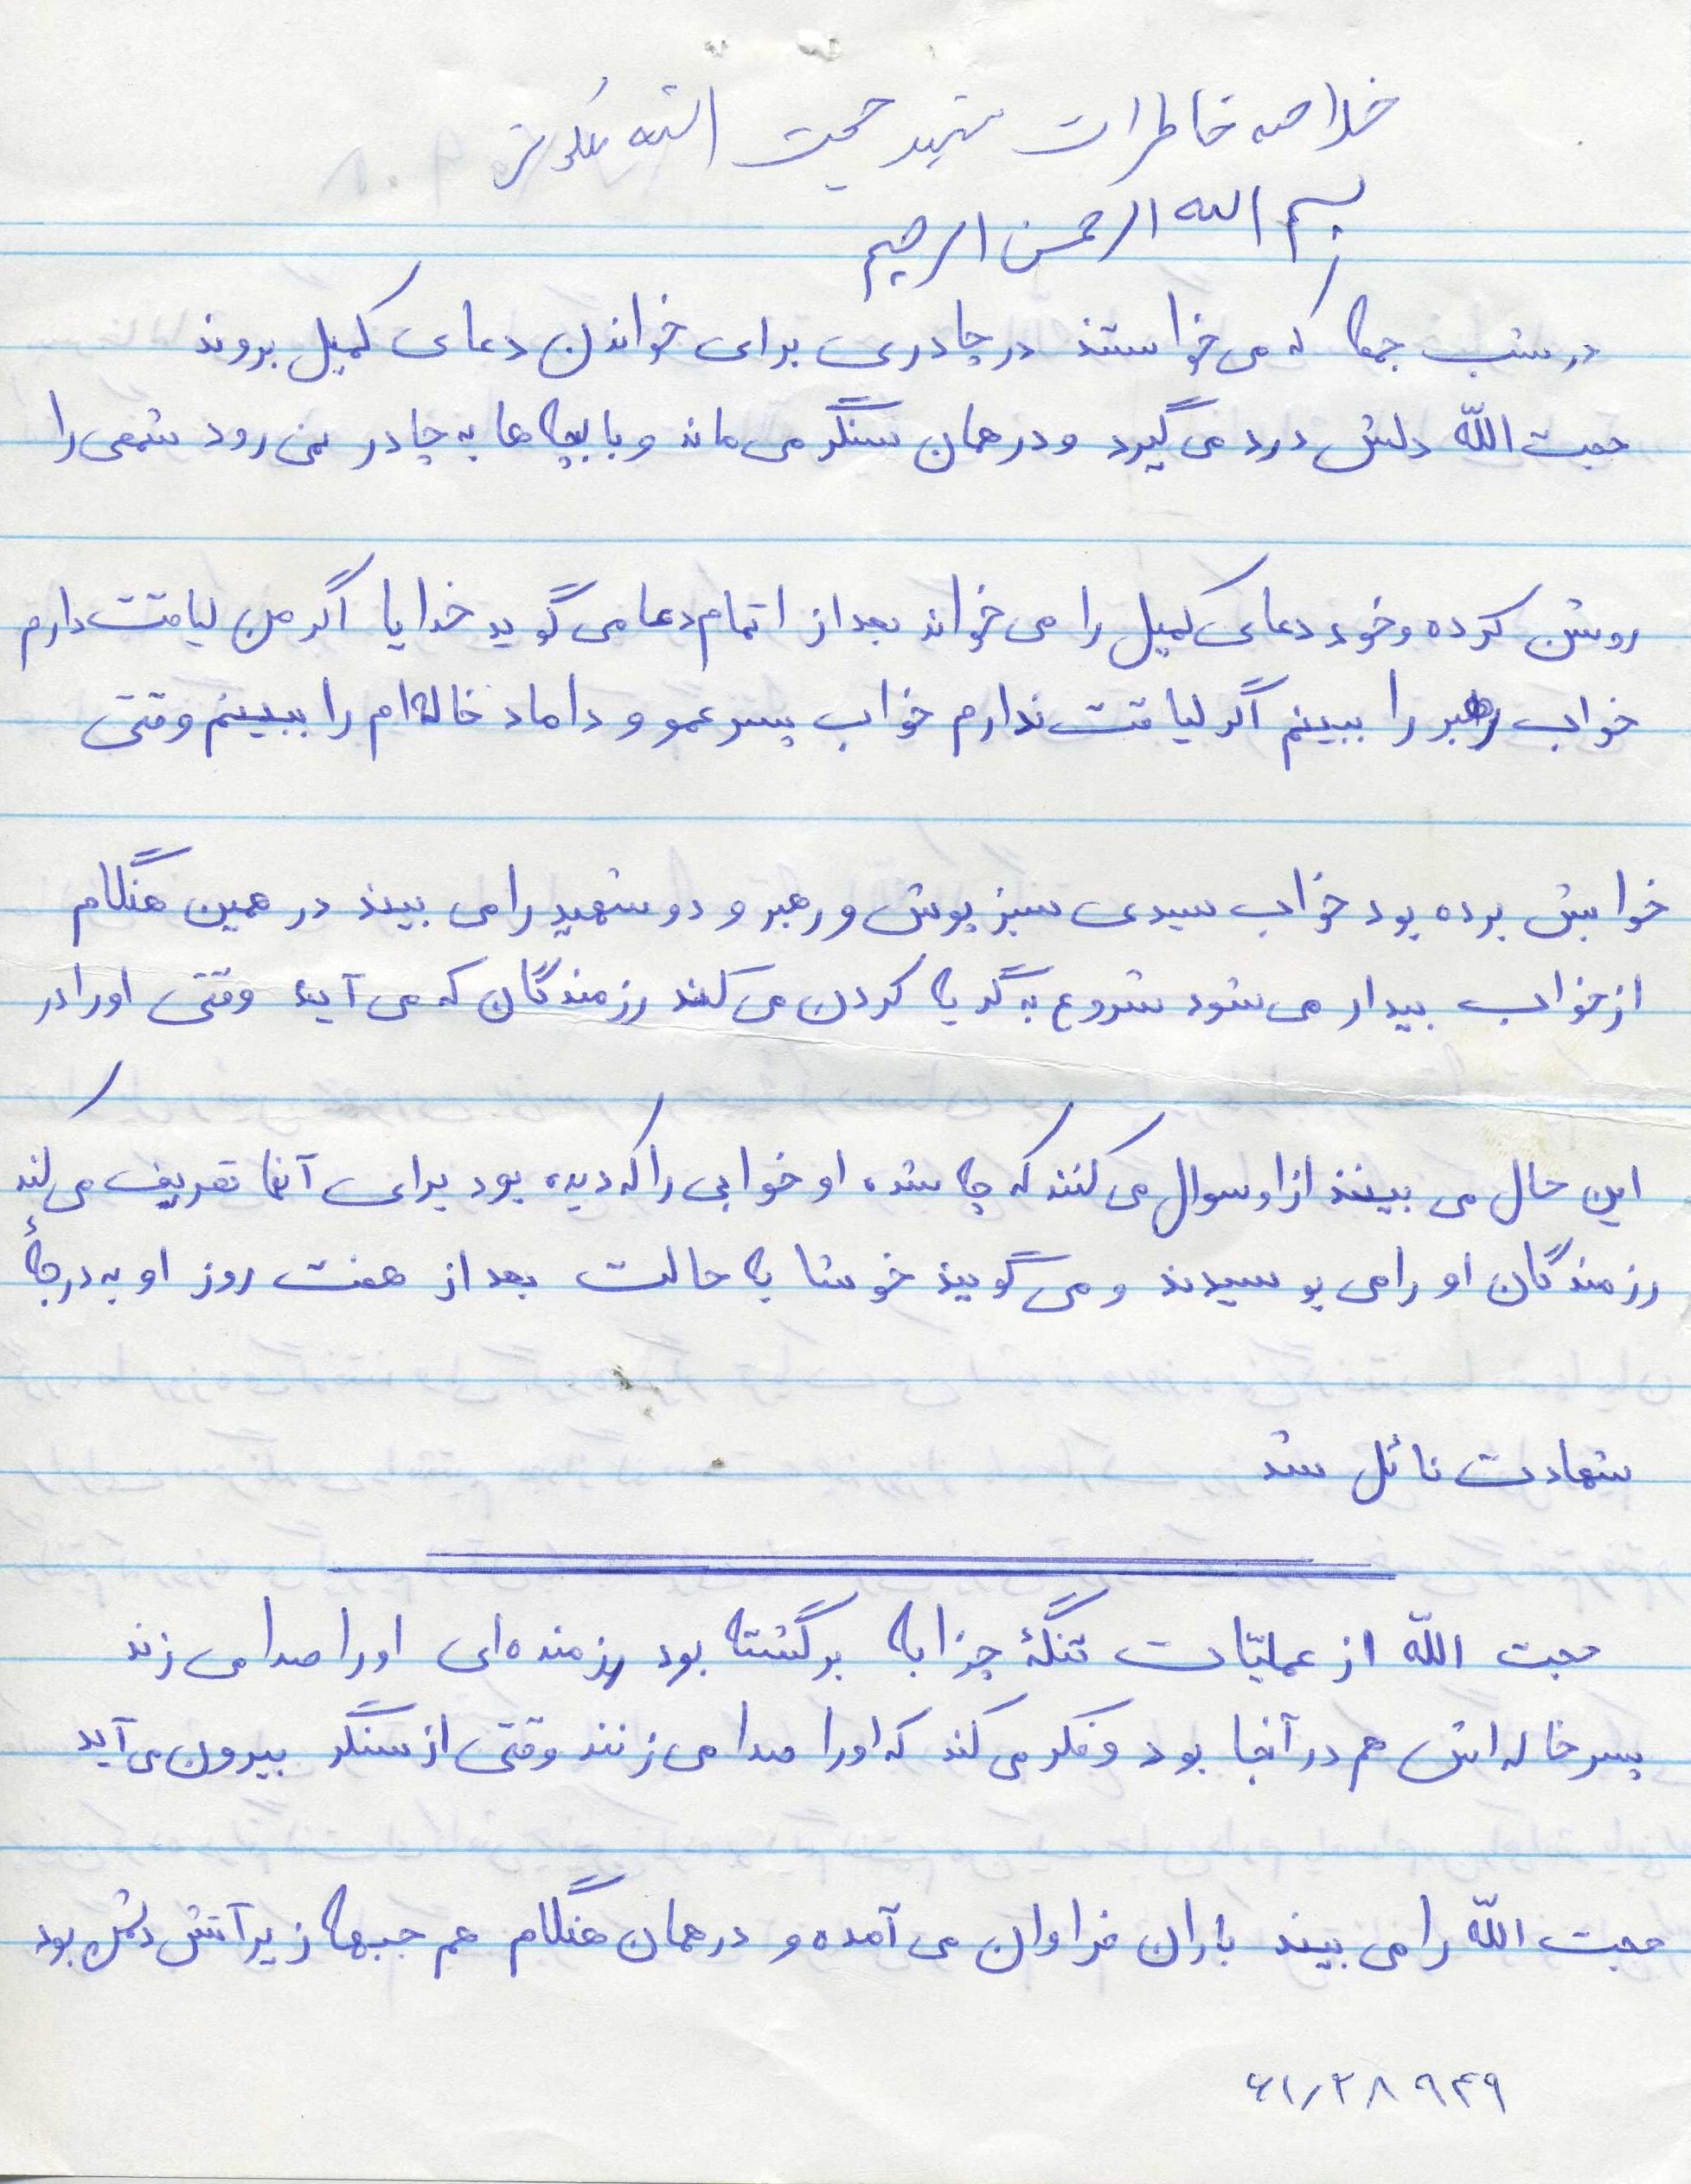 خلاصه خاطرات شهید حجت الله
بسم الله الرحمن الرحیم
در شب جمعه که می خواستند در چادری برای خواندن دعای کمیل بروند
حجت اللّه دلش درد می گیرد و در همان سنگر می ماند و با بچه ها به چادر نمی رود شمعی را
روشن کرده و خود دعای کمیل را می خواند بعد از اتمام دعا می گوید خدایا اگر من لیاقت دارم
خواب رهبر را ببینم اگر لیاقت ندارم خواب پسر عمو و داماد خاله ام را ببینم وقتی
خوابش برده بود خواب سیدی سبز پوش و رهبر و دو شهید را می بیند در همین هنگام
از خواب بیدار می شود شروع به گریه کردن می کند رزمندگان که می آیند وقتی او را در
این حال می بینند از او سوال می کنند که چه شده او خوابی را که دیده بود برای آنها تعریف می کند
رزمندگان او را می بوسیدند و می گویند خوشا به حالت بعد از هفت روز او به درجهٔ
شهادت نائل شد
حجت اللّه از عملیّات تنگهٔ چزابه برگشته بود رزمنده ای او را صدا می زند
پسر خاله اش هم در آنجا بود و فکر می کند که او را صدا می زنند وقتی از سنگر بیرون می آید
حجت اللّه را می بیند باران فراوان می آمده و در همان هنگام هم جبهه زیر آتش دشمن بود